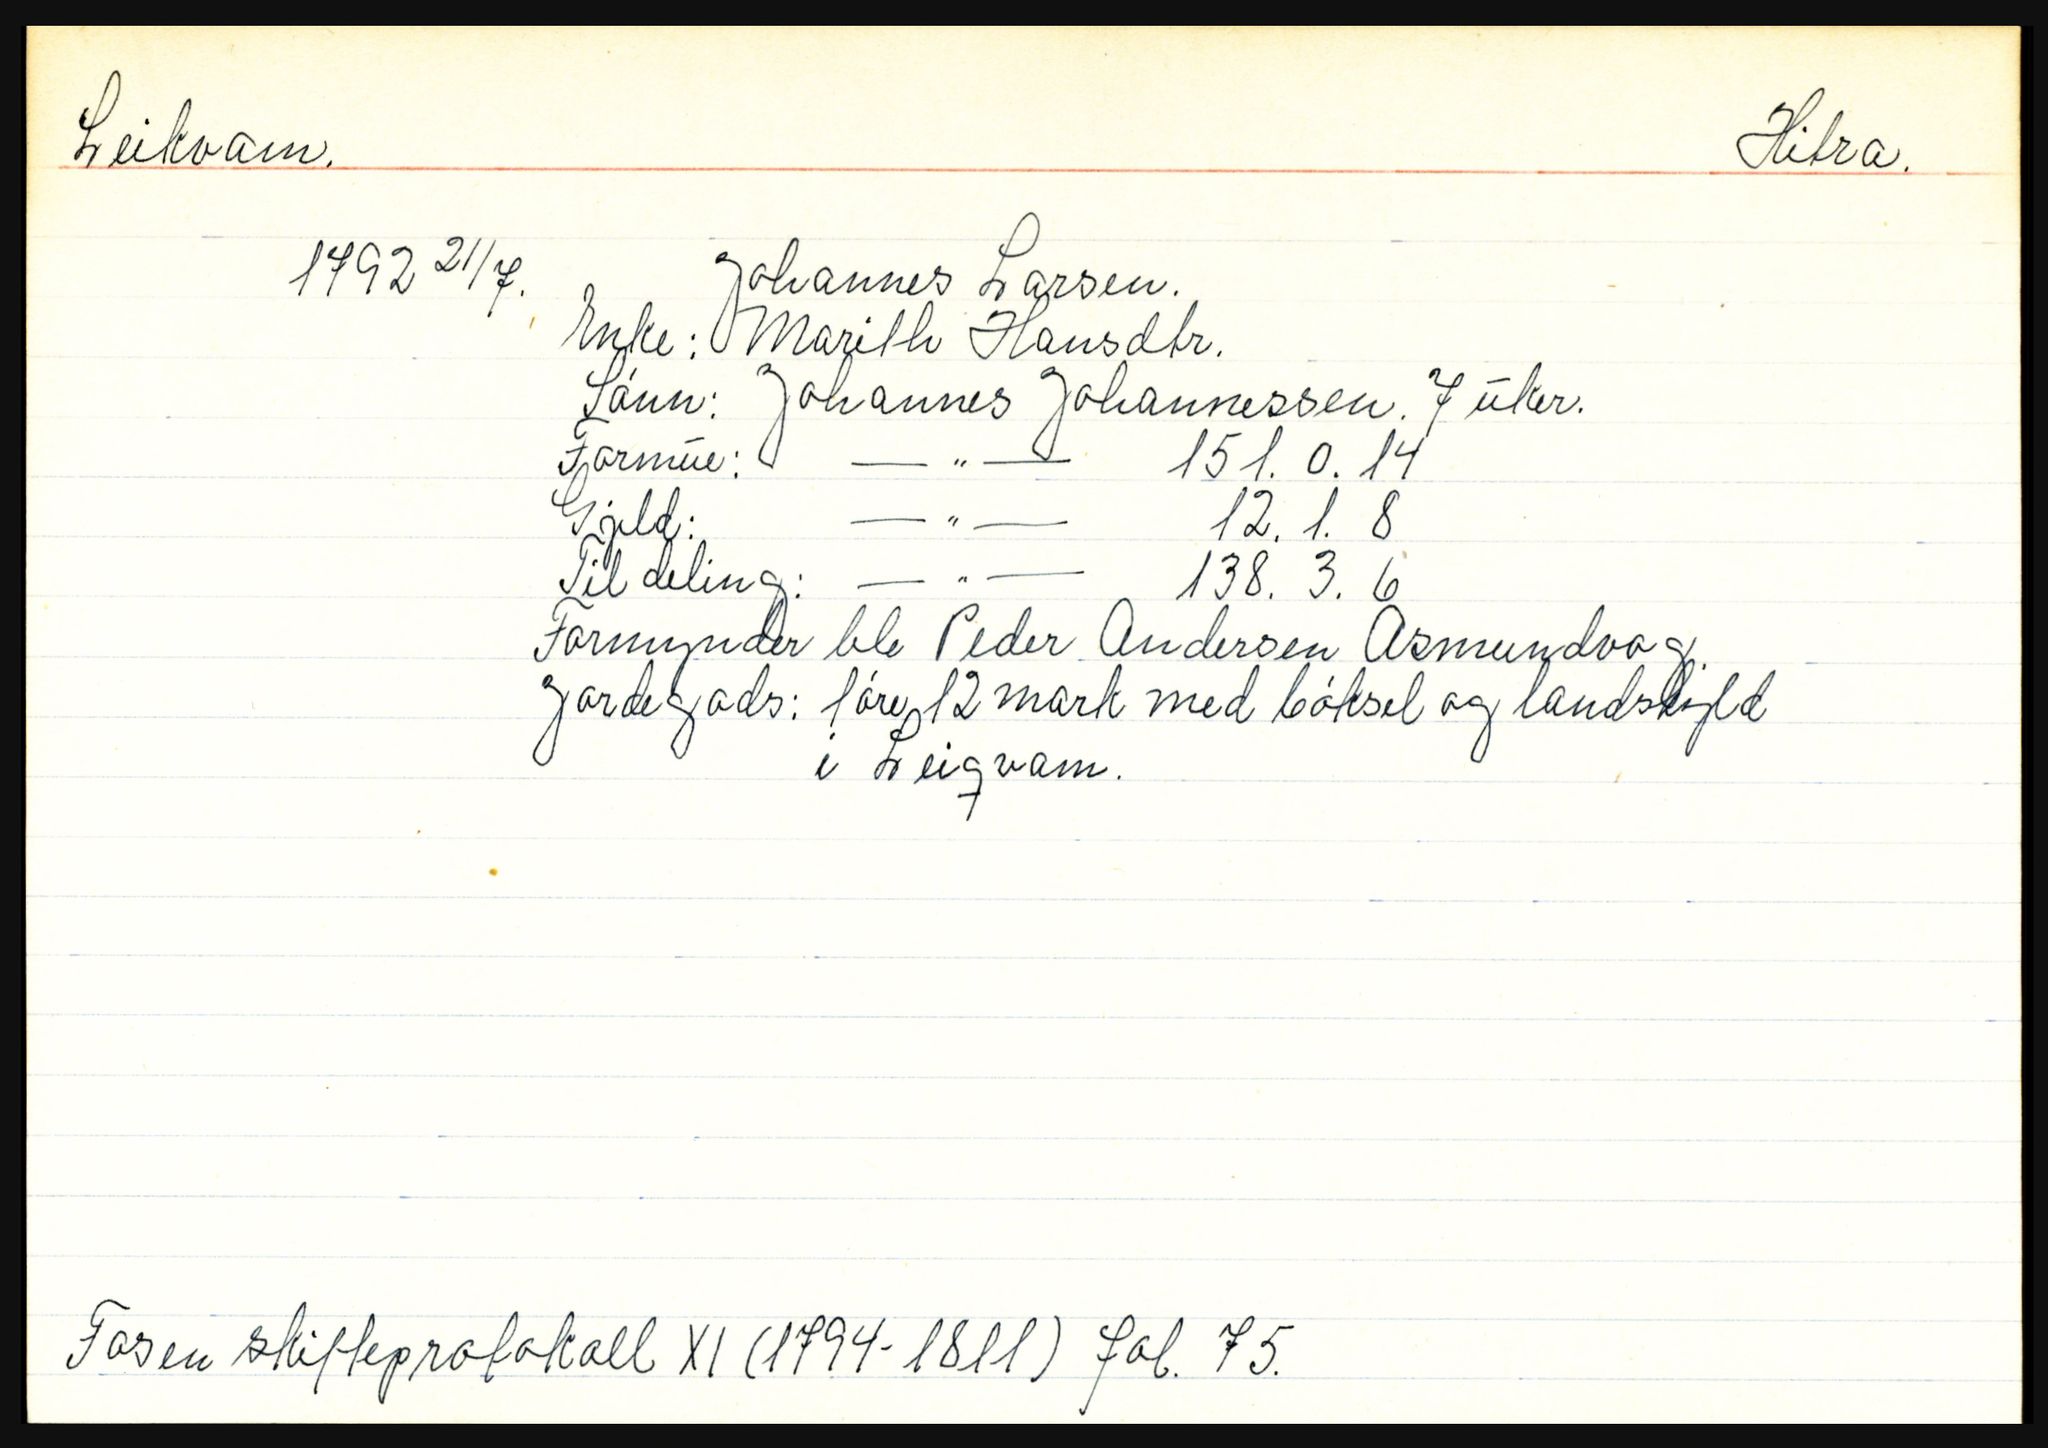 Leikvam. Hitra.
1792 21/7. Johannes Larsen.
Enke: Marith Hansdtr.
Sónn: Johannes Johannessen. 7 ūker.
Formūe: — „ — 151. 0. 14
Gjeld: — „ — 12. 1. 8
Til deling: — „ — 138. 3. 6
Formynder ble Peder Andersen Asmundvag.
Jordegods: 1 óre 12 mark med bóksel og landskyld
i Leigvam.
Fosen skifteprotokoll XI (1794-1811) fol. 75.